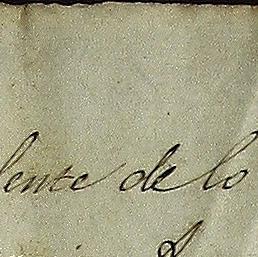 lente de lo